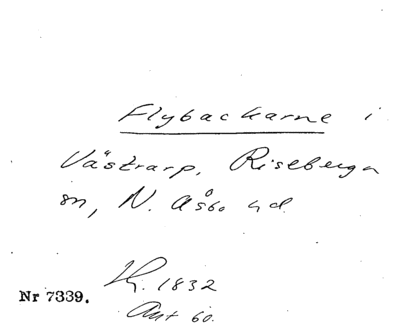 Flybackarne i
Västrarp, Riseberga
sn, N. Åsbo hd.
1832
Nr 7339.
Ant 60.